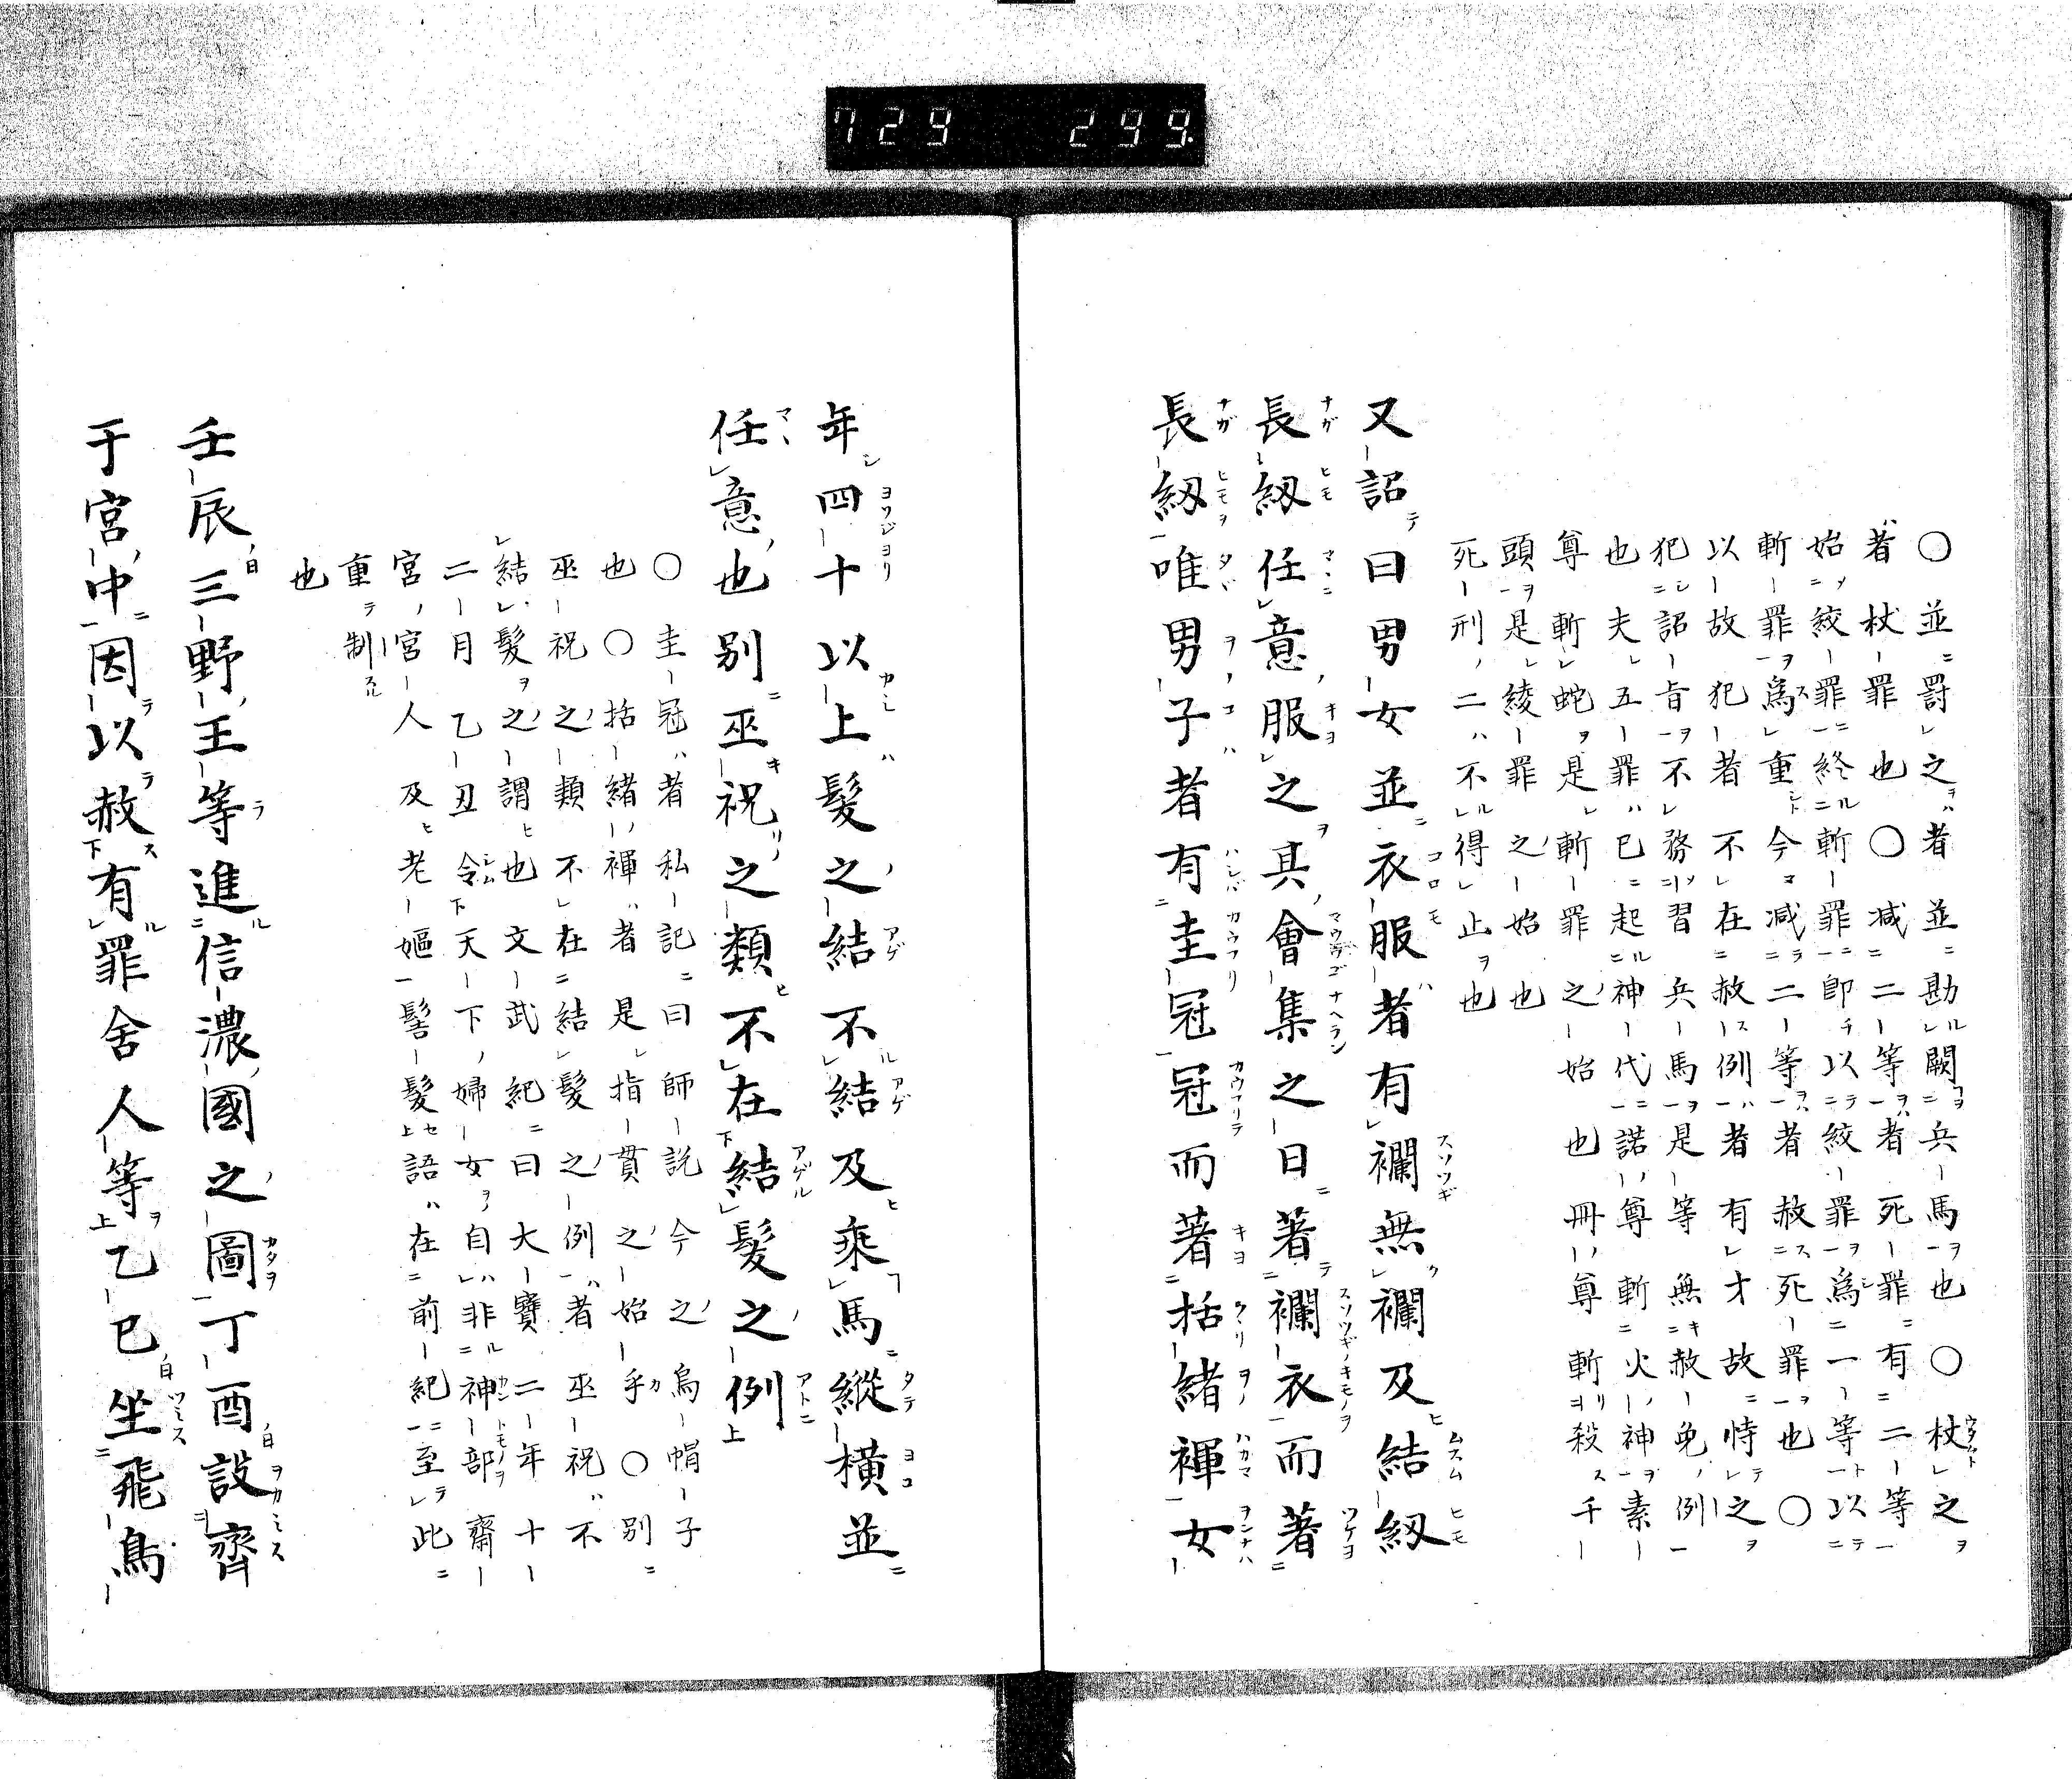 729 299
〇並罰之者並勘闕兵馬也〇杖之
者杖罪也〇減二等者死罪有二等
始絞罪終斬罪即以絞罪爲一等以
斬罪爲重今減二等者赦死罪也〇
以故犯者不在赦例者有才故恃之
犯詔旨不務習兵馬是等無赦免例
也夫五罪已起神代諾尊斬火神素
尊斬蛇是斬罪之始也冊尊斬殺千
頭是綾罪之始也
死刑二不得止也
又詔曰男女並衣服者有襴無襴及結紐
長紐任意服之其會集之日著襴衣而著
長紐唯男子者有圭冠冠而著括緒褌女
年四十以上髮之結不結及乘馬縱橫並
任意也別巫祝之類不在結髮之例
〇圭冠者私記曰師説今之烏帽子
也〇括緒褌者是指貫之始乎〇別
巫祝之類不在結髮之例者巫祝不
結髮之謂也文武紀曰大寶二年十
二月乙丑令天下婦女自非神部齋
宮宮人及老嫗髻髮語在前紀至此
重制
也
壬辰三野王等進信濃國之圖丁酉設齊
于宮中因以赦有罪舍人等乙巳坐飛鳥